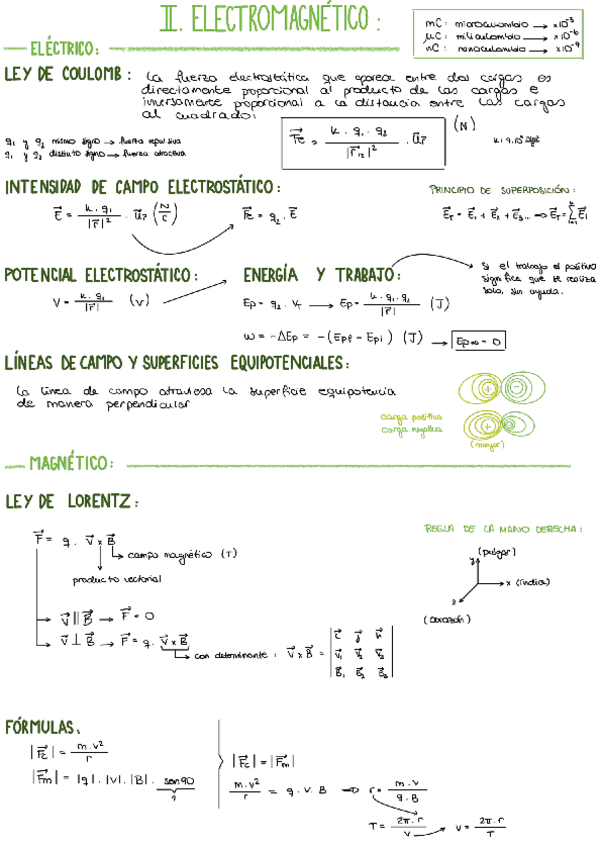 II. ELECTROMAGNÉTICO:
mC: microculombio → x10^-3
μC: miliculombio → x10^-6
nC: nanoculombio → x10^-9
ELÉCTRICO:
LEY DE COULOMB: La fuerza electrostática que aparece entre dos cargas es
directamente proporcional al producto de las cargas e
inversamente proporcional a la distancia entre las cargas
al cuadrado:
q1 y q2 mismo signo → fuerza repulsiva
q1 y q2 distinto signo → fuerza atractiva
Fe = K · q1 · q2 / |r12|^2 · ur (N)
INTENSIDAD DE CAMPO ELECTROSTÁTICO:
PRINCIPIO DE SUPERPOSICIÓN:
E = K · q1 / |r|^2 · ur (N/C)
Fe = q2 · E
ET = E1 + E2 + E3... ⇒ ET = Σ Ei
POTENCIAL ELECTROSTÁTICO:
ENERGÍA Y TRABAJO:
Si el trabajo es positivo
significa que se realiza
solo, sin ayuda.
V = K · q1 / |r| (V)
Ep = q2 · V → Ep = K · q1 · q2 / |r| (J)
W = -ΔEp = -(Epf - Epi) (J) → Ep∞ = 0
LÍNEAS DE CAMPO Y SUPERFICIES EQUIPOTENCIALES:
La línea de campo atraviesa la superficie equipotencia
de manera perpendicular
carga positiva
carga negativa
(mayor)
MAGNÉTICO:
LEY DE LORENTZ:
REGLA DE LA MANO DERECHA:
F = q · V x B
campo magnético (T)
producto vectorial
y (pulgar)
x (índice)
z
(corazón)
V ∥ B → F = 0
V ⊥ B → F = q · V x B
con determinante: V x B = | i j k |
| V1 V2 V3 |
| B1 B2 B3 |
FÓRMULAS:
|Fc| = m·v^2 / r
|Fm| = |q| · |v| · |B| · sen90
1
|Fc| = |Fm|
m·v^2 / r = q · v · B ⇒ r = m · v / q · B
T = 2π · r / v → v = 2π · r / T